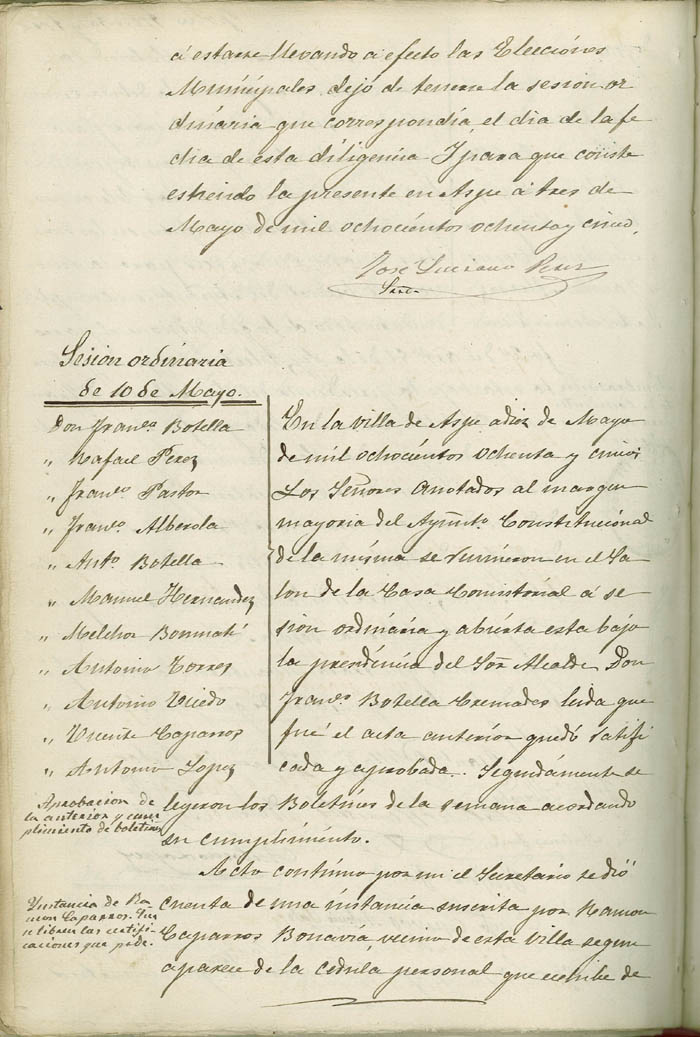 á estarse llevando á efecto las Elecciónes
Municipales dejó de tenerse la sesion or
dinária que correspondía, el dia de la fe
cha de esta diligencia Y para que conste
estiendo la presente en Aspe á tres de
Mayo de mil ochocientos ochenta y cinco,
José Luciano Perez
Srio
Sesión ordinária
de 10 de Mayo.
Don Franco. Botella
„ Rafael Perez
„ Franco. Pastor
„ Franco. Alberola
„ Anto. Botella
„ Manuel Hernandez
„ Melchor Bonmatí
„ Antonio Torres
„ Antonio Ucedo
„ Vicente Caparros
„ Antonio Lopez
En la villa de Aspe a diez de Mayo
de mil ochocientos ochenta y cinco:
Los Señores anotados al margen
mayoria del Ayuntto. Constituciónal
de la misma se reunieron en el Sa
lon de la Casa Consistorial á se
sión ordinária y abierta esta bajo
la presidéncia del Sor. Alcalde Don
Franco. Botella Cremades leida que
fué el acta anterior quedó ratifi
cada y aprobada. Segundamente se
leyeron los Boletines de la semana acordando
su cumplimiento.
Aprobacion de
la anterior y cum
plimiento de boletines
Acto contínuo por mi el Secretario se dió
cuenta de una instáncia suscrita por Ramon
Caparros Bonavía, vecino de esta villa segun
aparece de la cédula personal que exhibe de
Instancia de Ra
mon Caparros. Que
se libren las certifi
caciones que pide.